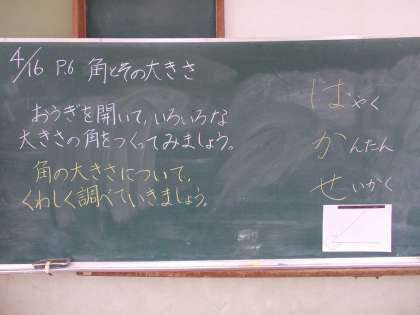 4/16 P.6 角とその大きさ
おうぎを開いて、いろいろな
大きさの角をつくってみましょう。
角の大きさについて、
くわしく調べていきましょう。
はやく
かんたん
せいかく